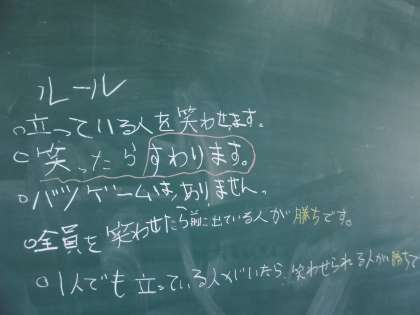 ルール
○立っている人を笑わせます。
○笑ったらすわります。
○バツゲームは、ありません。
○全員を笑わせたら前に出ている人が勝ちです。
○1人でも立っている人がいたら、笑わせられる人が勝ちで